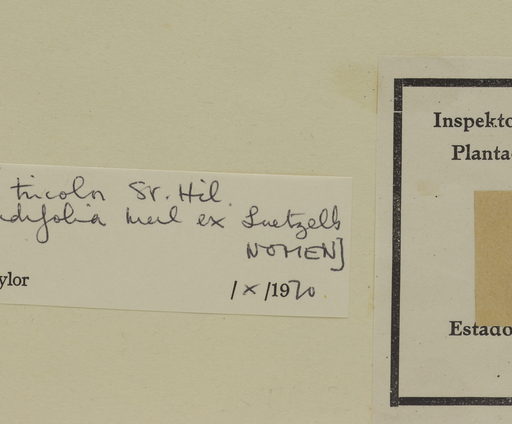 tricolor St. Hil.
ndifolia Merl ex Luetzelb
NOMEN]
ylor
/ x /1970.
Inspekto
Planta
Estado